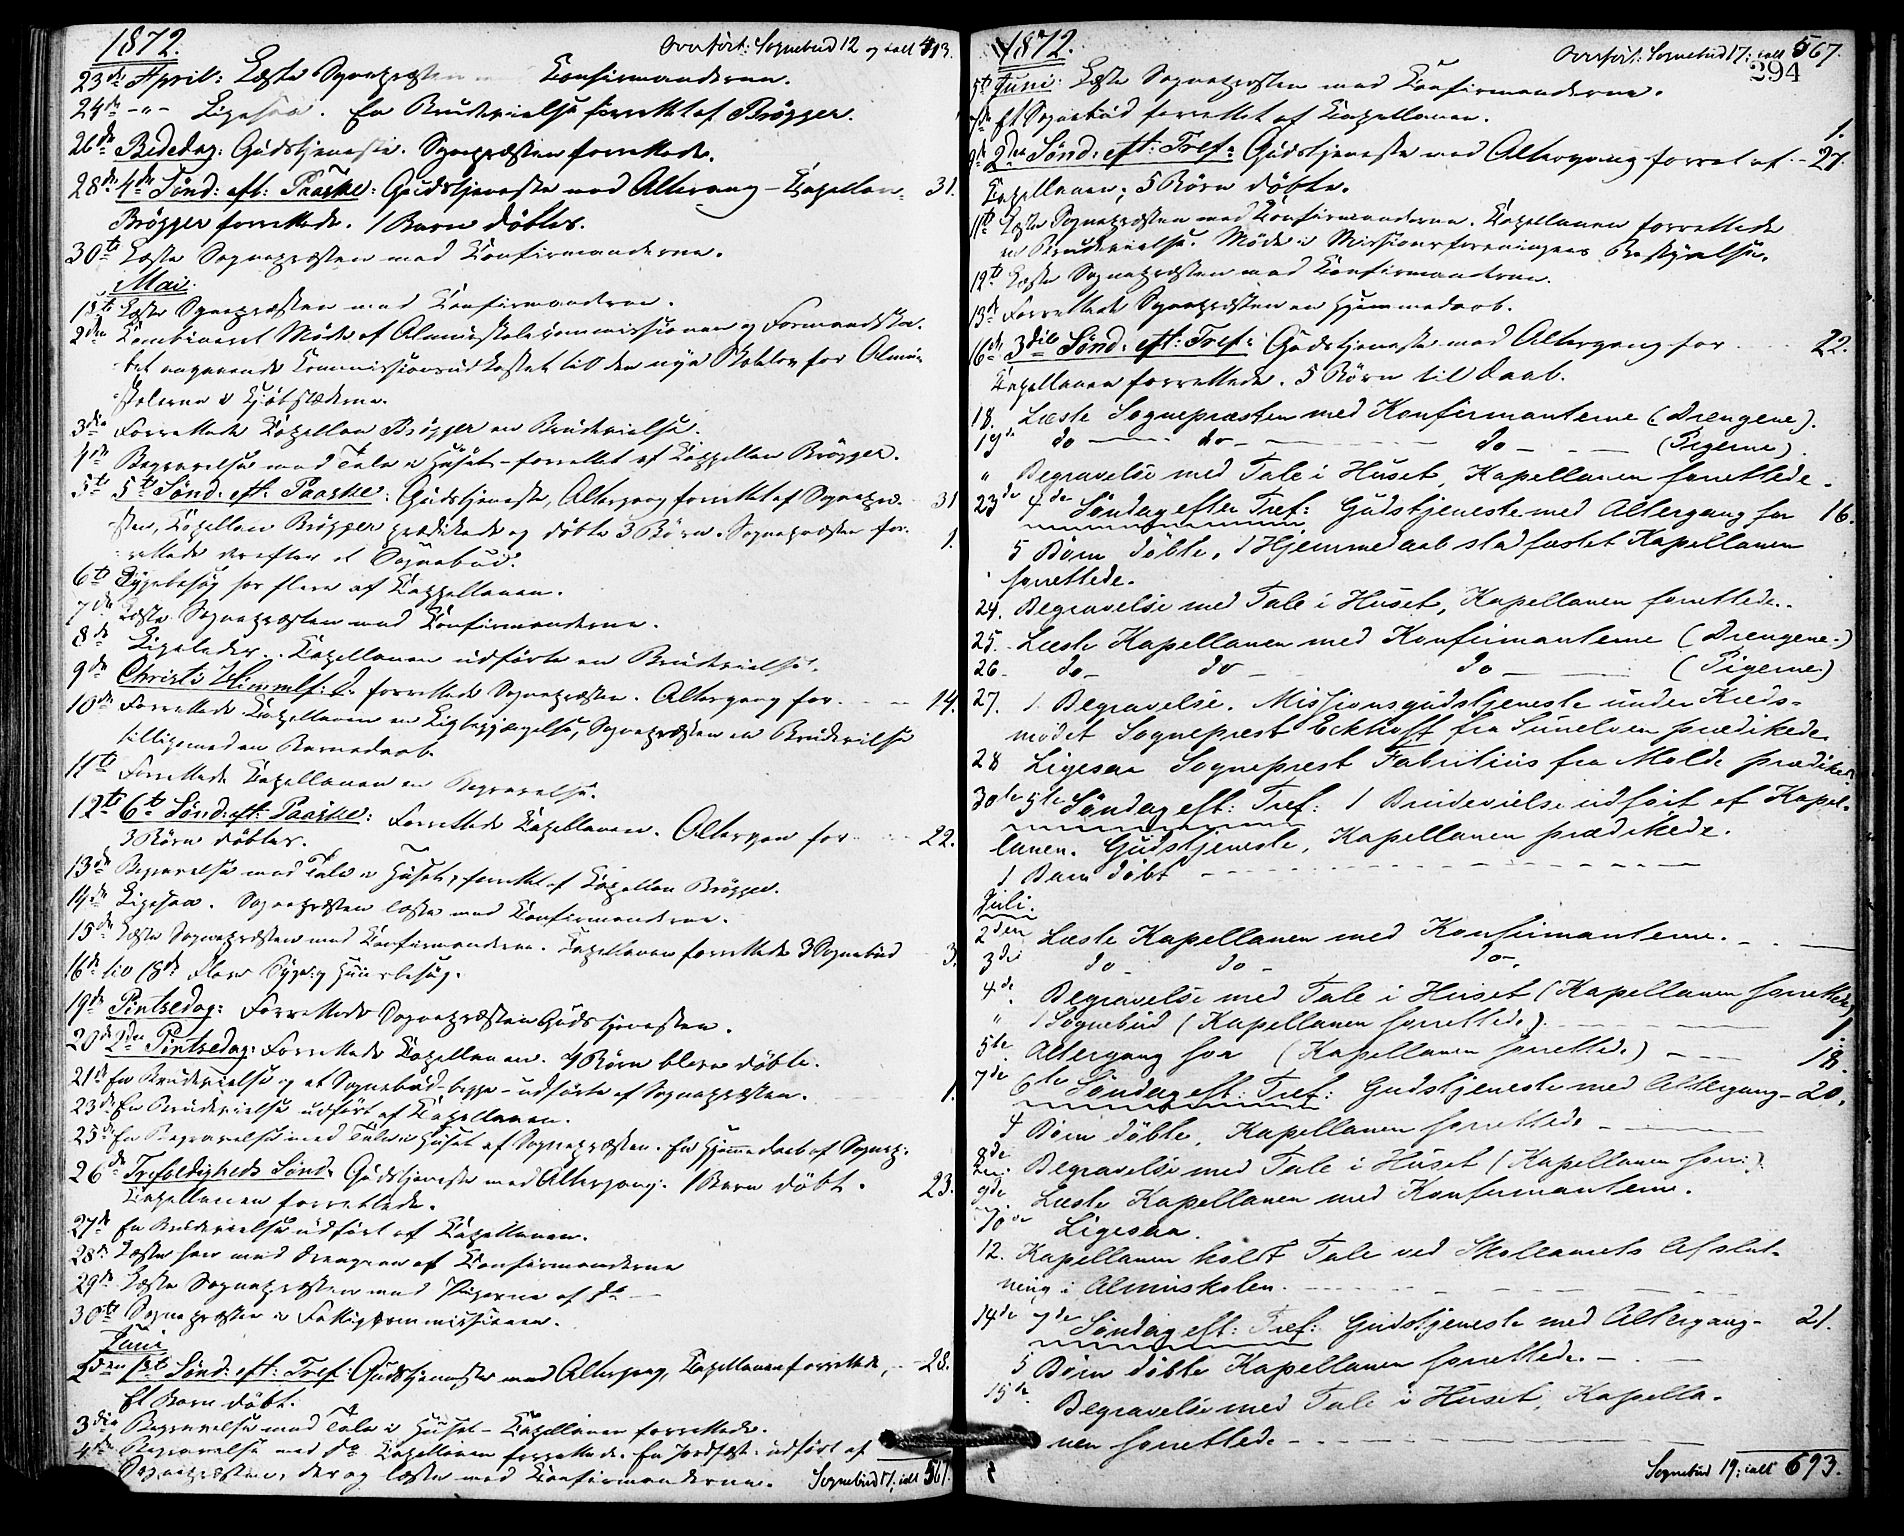 1872. Overført: Sognebud 12 og ialt 413.
23de April: Læste Sognepræsten med Konfirmanderne.
24de -"- Ligesaa. En Brudevielse forrettet af Brøgger.
26de Bededag: Gudstjeneste. Sognepræsten forrettede.
28de 4de Sønd: eft: Paaske: Gudstjeneste med Altergang - Kapellan 31.
Brøgger forrettede. 1 Barn døbtes.
30te Læste Sognepræsten med Konfirmanderne.
Mai.
1ste Læste Sognepræsten med Konfirmanderne.
2den Kombineret Møde af Almueskolekommissionen og Formandska-
bet angaaende Kommissionsudkastet til den nye Skolelov for Almue-
skolerne i Kjøbstæderne.
3die Forrettede Kapellan Brøgger en Brudevielse.
4de Begravelse med Tale i Huset - forrettet af Kappellan Brøgger.
5te 5te Sønd. eft. Paaske: Gudstjeneste, Altergang forrettet af Sognepræ- 31
sten, Kapellan Brøgger prædikede og døbte 3 Børn. Sognepræsten for-
rettede derefter et Sognebud. 1.
6te Sygebesøg hos flere af Kappellanen.
7de Læste Sognepræsten med Konfirmanderne.
8de Ligeledes. Kapellanen udførte en Brudevielse.
9de Christi Himmelf: D. forrettede Sognepræsten. Altergang for 14.
10de Forrettede Kapellanen en Ligbegjængelse, Sognepræsten en Brudevielse
tilligemed en Barnedaab.
11te Forrettede Kapellanen en Begravelse.
12te 6te Sønd: eft: Paaske: Forrettede Kapellanen. Altergan for 22.
3 Børn døbtes.
13de Begravelse med Tale i Huset, forrettet af Kapellan Brøgger.
14de Ligesaa. Sognepræsten læste med Konfirmanderne.
15de Læste Sognepræsten med Konfirmanderne. Kapellanen forrettede 3 Sognebud 3.
16de til 18de Flere Syge og Huusbesøg.
19de Pintsedag: Forrettede Sognepræsten Gudstjenesten.
20de 2den Pintsedag: Forrettede Kapellanen. 4 Børn bleve døbte.
21de En Brudevielse og et Sognebud - begge - udførte af Sognepræsten. 1.
23de En Brudevielse udført af Kapellanen.
25de En Begravelse med Tale i Huset af Sognepræsten. En Hjemmedaab af Sognep:
26de Trefoldigheds Sønd. Gudstjeneste med Altergang. 1 Barn døbt. 23.
Kapellanen forrettede.
27de En Brudevielse udført af Kapellanen.
28de Læste han med Drengene af Konfirmanderne
29de Læste Sognepræsten med Pigerne af do
30te Sognepræsten i Fattigkommissionen.
Juni
2den 1ste Sønd: eft: Tref: Gudstjeneste med Altergang, Kapellanen forrettede, 28.
Et Barn døbt.
3die Begravelse med Tale i Huset - Kapellanen forrettede.
4de Begravelse med do Kapellanen forrettede. En Jordfæst. udført af
Sognepræsten, der og læste med Konfirmanderne. Sognebud 17, ialt 567.
1872. Overført: Sognebud 17: ialt 567.
294
5te Juni: Læste Sognepræsten med Konfirmanderne.
7de Et Sognebud forrettet af Kapellanen. 1.
9de 2den Sønd. eft: Tref: Gudstjeneste med Altergang forret af 27.
Kapellanen; 5 Børn døbte.
11te Læste Sognepræsten med Konfirmanderne. Kapellanen forrettede
en Brudevielse. Møde i Missionsforeningens Bestyrelse.
12te Læste Sognepræsten med Konfirmanderne.
13de Forrettede Sognepræsten en Hjemmedaab.
16de 3die Sønd. eft: Tref: Gudstjeneste med Altergang for 22.
Kapellanen forrettede. 5 Børn til Daab.
18. Læste Sognepræsten med Konfirmanterne (Drengene).
19de do - do - do - (Pigerne).
" Begravelse med Tale i Huset, Kapellanen forrettede.
23de 4de Søndag efter Tref: Gudstjeneste med Altergang for 16.
5 Børn døbte, 1 Hjemmedaab stadfæstet Kapellanen
forrettede.
24. Begravelse med Tale i Huset, Kapellanen forrettede.
25. Læste Kapellanen med Konfirmanterne (Drengene.)
26 do - do - do - (Pigerne)
27. 1 Begravelse. Missionsgudstjeneste under Kreds-
mødet Sognepræst Eckhoff fra Sunelven prædikede
28 Ligesaa Sognepræst Fabritius fra Molde prædiked
30te 5te Søndag eft: Tref: 1 Brudevielse udført af Kapel-
lanen. Gudstjeneste, Kapellanen prædikede.
1 Barn døbt
Juli.
2den Læste Kapellanen med Konfirmanterne.
3die do - do - do -
4de Begravelse med Tale i Huset (Kapellanen forrettede)
" 1 Sognebud (Kapellanen forrettede). 1.
5te Altergang for (Kapellanen forrettede) 18.
7de 6te Søndag eft: Tref: Gudstjeneste med Altergang - 20.
4 Børn døbte, Kapellanen forrettede
8de Begravelse med Tale i Huset (Kapellanen forr:)
9de Læste Kapellanen med Konfirmanterne.
10de Ligesaa.
12. Kapellanen holdt Tale ved Skoleaarets Afslut-
ning i Almueskolen.
14de 7de Søndag eft: Tref: Gudstjeneste med Altergang - 21.
5 Børn døbte Kapellanen forrettede.
15de Begravelse med Tale i Huset, Kapella-
nen forrettede
Sognebud 19: ialt 693.